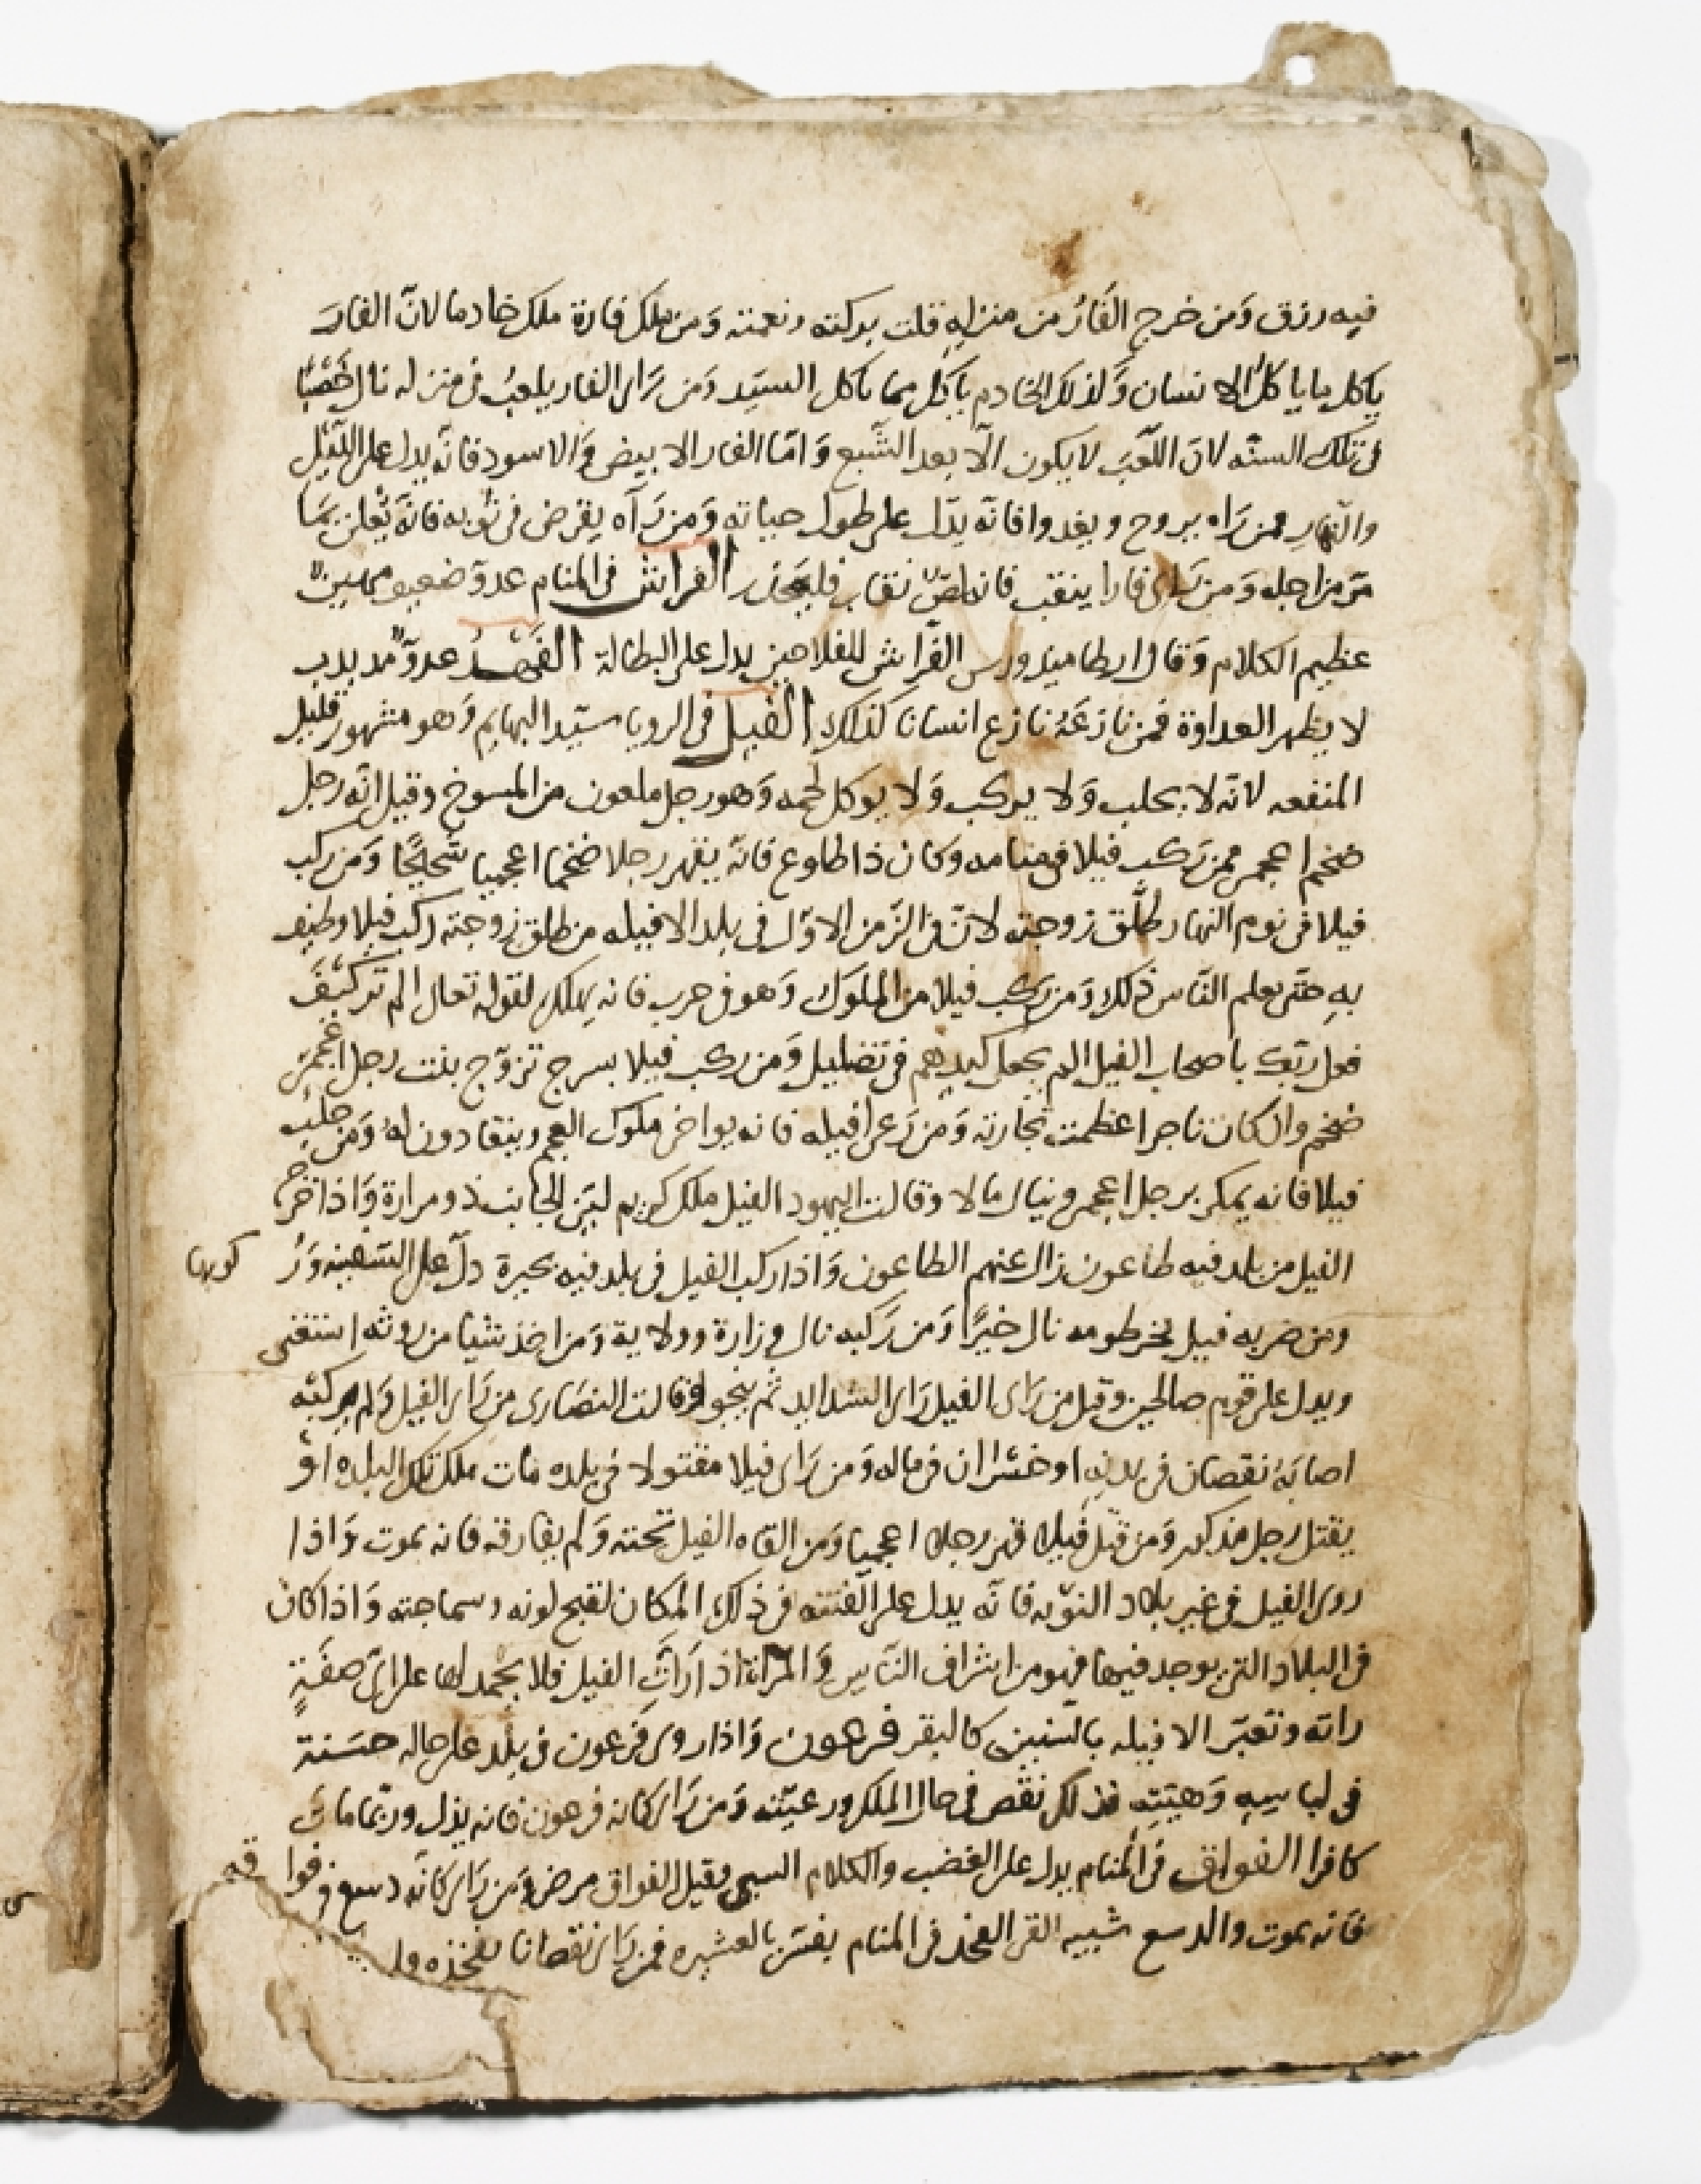 فيه رزق وَمن خرج الفَارُ من منزله قلت بركته ونعمته وَمن ملك فارة ملك خادما لانّ الفارَ
ياكل مما ياكل الانسان وَلذلك الخادم ياكل مما ياكل السيّد وَمن رَاى الفار يلعبُ في منزله نال خَصْبًا
في تلك السنّه لان اللّعبَ لا يكون الّا بعد الشّبع وَامّا الفار الابيض وَالاسود فانّه يدل على اللّيْل
والنّهارِ فمن رَاه يروح ويغدوا فانّه يدّل على طول حياته وَمن رَآه يقرض في ثوبه فانّه يُعلن بمَا
مرّ من اجله وَمن رَاى فارا ينقب فانه لصٌّ نقاب فليحذر الفراش في المنام عدوّ ضعيف مهين
عظيم الكلام وَقال ارطاميدورس الفراش للفلاحين يدل على البطالة الفَهْدُ عدوٌّ مذبذب
لا يظهر العداوة فمن نازعَهُ نازع انسانا كذلك الفيل في الرويا سيّد البهايم وَهو مشهور قليل
المنفعه لانّه لا يحلب وَلا يركب وَلا يوكل لحمه وَهو رجل ملعون من المسوخ وقيل انّه رجل
ضخم اعجمى فمن رَكب فيلا في منامه وكان ذا طاوع فانّه يقهر رجلا ضخما اعجميا شحيحًا وَمن ركب
فيلا في نوم النهار طلّق زوجته لانّ في الزّمن الاوّل في بلد الافيله من طلق زوجته اركب فيلا وطيف
بهِ حتّى يعلم النّاس ذلك وَمن ركب فيلا من الملوك وَهو في حرب فانه يهلك لقوله تعالى الم تر كيْفَ
فعل ربّك باصحاب الفيل الم يجعل كيدهم في تضليل وَمن ركب فيلا بسرج تزوّج بنت رجل اعجمىّ
ضخم وان كان تاجرا عظمت تجارته وَمن رَعى افيله فانه يواخى ملوك العجم وينقادون لهُ وَمَن حلب
فيلا فانه يمكر برجل اعجمى وينال مالا وقالت اليهود الفيل ملك كريم ليّن الجانب ذو مرارة وَاذا خرج
الفيل من بلد فيه طاعون زال عنهم الطاعون وَاذا ركب الفيل في بلد فيه بحيرة دلّ على السّفينه وَرُ كوبها
ومن ضربه فيل بخرطومه نال خيرًا وَمن رَكبه نال وزارة وولاية وَمن اخذ شيا من روثه استغنى
ويدل على قوم صالحين وقيل من رَاى الفيل رَاى الشدايد ثم ينجو وقالت النصَارى من رَاى الفيل وَلم يركبْه
اصابَهُ نقصان في بدنهِ او خسْران في ماله وَمن رَاى فيلا مقتولا في بلده مَات ملك تلك البلده اوْ
يقتل رجل مذكور وَمن قتل فيلا قهر رجلا اعجميا وَمن القاه الفيل تحته وَلم يفارقه فانه يموت وَاذا
روى الفيل في غير بلاد النوْبه فانّه يدل على الفتنه في ذلك المكان لقبح لونه وسماجته وَاذا كان
في البلاد التي يوجد فيها فهو من اشراف النّاس وَالمراة اذا رَاتِ الفيل فلا يحمد لها على اىّ صفةٍ
راته وتعبّر الافيله بالسّنين كالبقر فرعون وَاذا روى فرعون في بلْد على حاله حسَنة
في لباسِهِ وَهيْئتِهِ فذلك نقْص في حال الملك ورعيّته وَمن رَاى كانه فرعون فانه يذل وربّما ماتَ
كافرا الفواق في المنام يدل على الغضب والكلام السيى وقيل الفواق مرض وَمن رَاى كانّه دسع وفوا قه
فانه يموت والدسع شبيه القى الفخذ في المنام يفسّر بالعشيره فمن رَاى نقصانا بفخذه